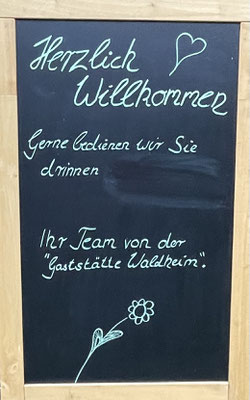 Herzlich
Willkommen
Gerne bedienen wir Sie
drinnen
Ihr Team von der
"Gaststätte Waldheim".